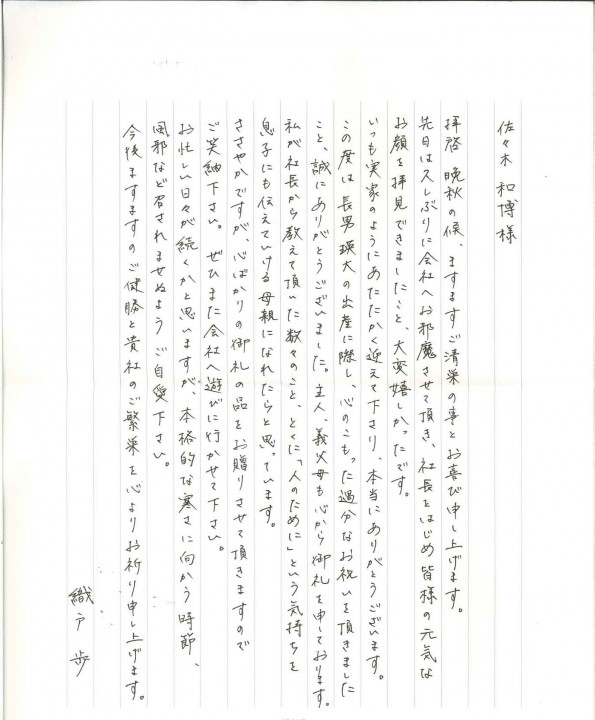 佐々木 和博様
拝啓 晩秋の候、ますますご清栄の事とお喜び申し上げます。
先日は久しぶりに会社へお邪魔させて頂き、社長をはじめ皆様の元気な
お顔を拝見できましたこと、大変嬉しかったです。
いつも実家のようにあたたかく迎えて下さり、本当にありがとうございます。
この度は長男瑛大の出産に際し、心のこもった過分なお祝いを頂きました
こと、誠にありがとうございました。主人、義父母も心から御礼を申しております。
私が社長から教えて頂いた数々のこと、とくに「人のために」という気持ちを
息子にも伝えていける母親になれたらと思っています。
ささやかですが、心ばかりの御礼の品をお贈りさせて頂きますので
ご笑納下さい。ぜひまた会社へ遊びに行かせて下さい。
お忙しい日々が続くかと思いますが、本格的な寒さに向かう時節、
風邪など召されませぬようご自愛下さい。
今後ますますのご健勝と貴社のご繁栄を心よりお祈り申し上げます。
織戸 歩